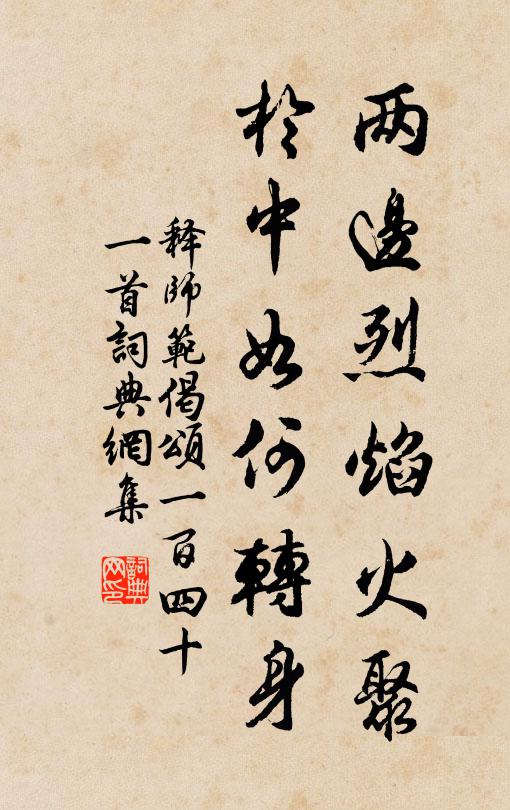 两邊烈焰火聚
於中如何轉身
释師範偈頌一百四十
一首詞典網集
詞典
网印